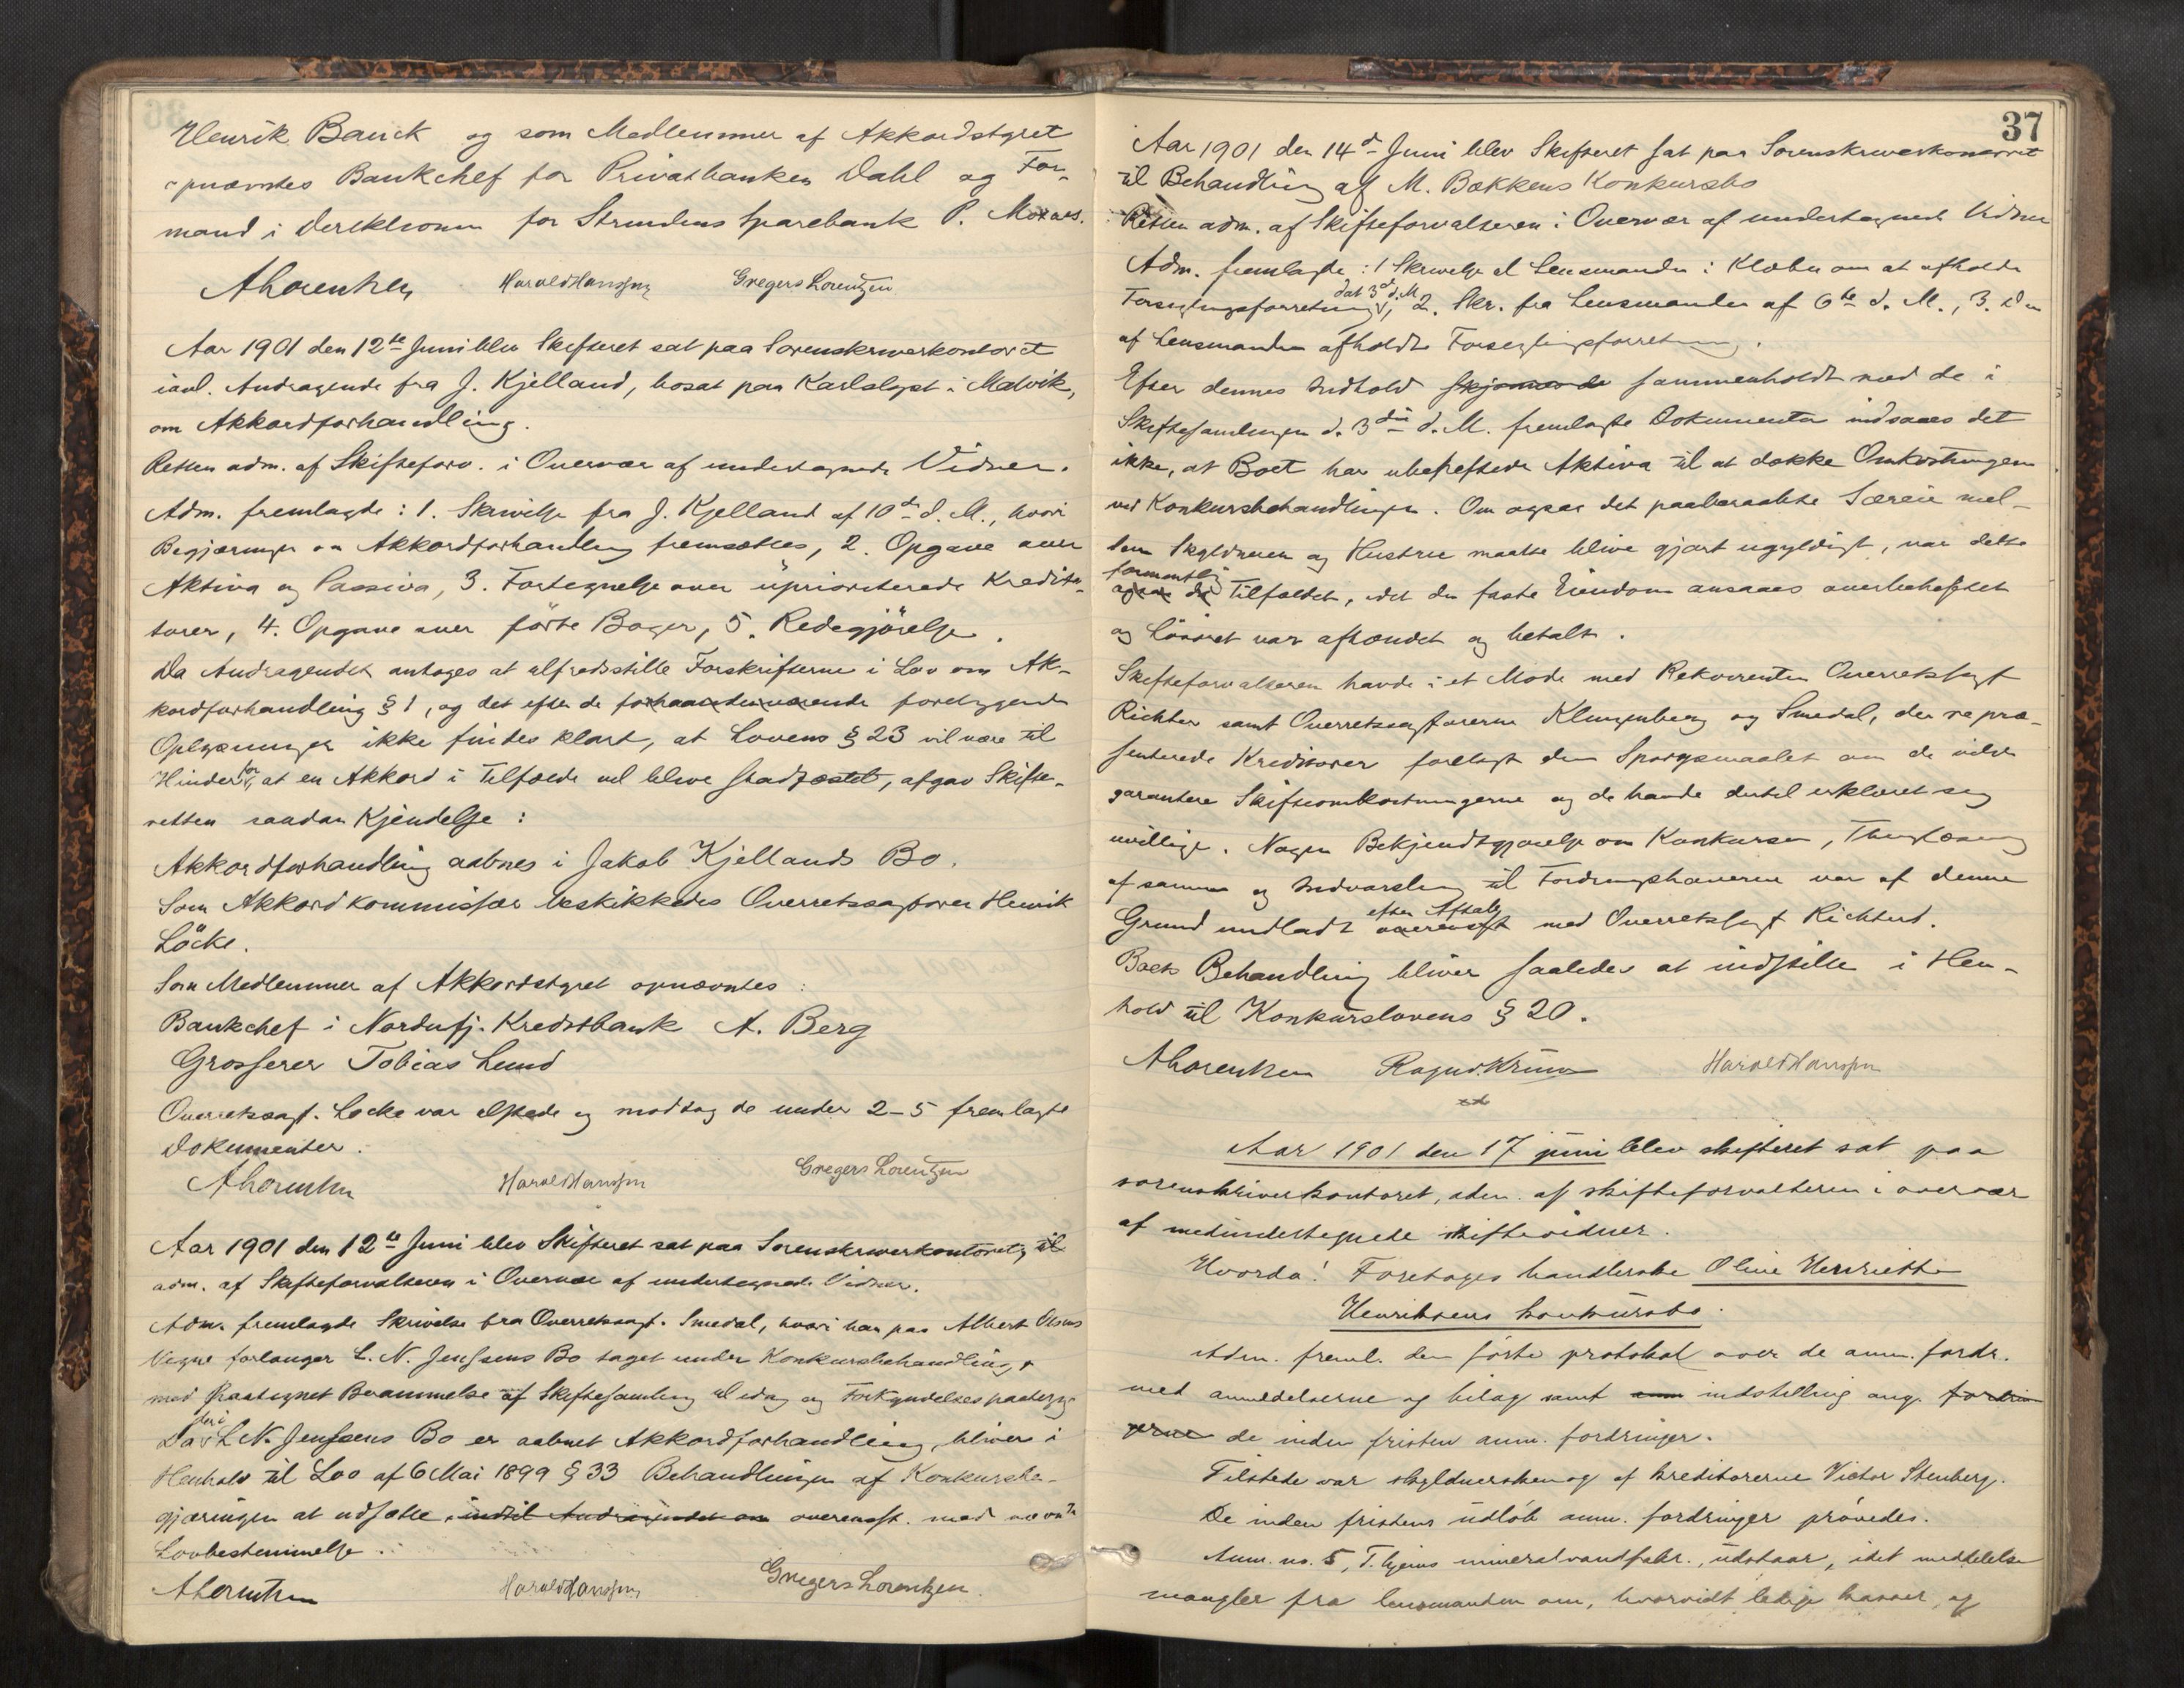 Henrik Bauck og som Medlemmer af Akkordstyret
opnævntes Bankchef for Privatbanken Dahl og For-
mand i Direktionen for Strindens Sparebank P. Moxnes.
ALorentzen Harald Hanssen Gregers Lorentzen
Aar 1901 den 12te Juni blev Skifteret sat paa Sorenskriverkontoret
ianl. Andragende fra J. Kjelland, bosat paa Karlslyst i Malvik,
om Akkordforhandling.
Retten adm. af Skifteforv. i Overvær af undertegnede Vidner.
Adm. fremlagde: 1. Skrivelse fra J. Kjelland af 10de d. M., hvori
Begjæringen om Akkordforhandling fremsættes, 2. Opgave over
Aktiva og Passiva, 3. Fortegnelse over uprioriterede Kredi-
torer, 4. Opgave over førte Bøger, 5. Redegjørelse.
Da Andragendet antages at tilfredsstille Forskrifterne i Lov om Ak-
kordforhandling § 1, og det efter de forhaandenværende foreliggende
Oplysninger ikke findes klart, at Lovens § 23 vil være til
Hinder for, at en Akkord i Tilfælde vil blive stadfæstet, afgav Skifte-
retten saadan Kjendelse:
Akkordforhandling aabnes i Jakob Kjellands Bo.
Som Akkordkommissær beskikkedes Overretssagfører Henrik
Løcke.
Som Medlemmer af Akkordstyret opnævntes:
Bankchef i Nordenfj. Kreditbank A. Berg
Grosserer Tobias Lund
Overretssagf. Løcke var tilstede og modtog de under 2-5 fremlagte
Dokumenter.
ALorentzen Harald Hanssen Gregers Lorentzen
Aar 1901 den 12te Juni blev Skifteret sat paa Sorenskriverkontoret, til
adm. af Skifteforvalteren i Overvær af undertegnede Vidner.
Adm. fremlagde Skrivelse fra Overretssagf. Smedal, hvori han paa Albert Olsens
Vegne forlanger L. N. Jenssens Bo taget under Konkursbehandling,
med paategnet Berammelse af Skiftesamling til idag og Forkyndelsespaategn.
Da der i L. N. Jenssens Bo er aabnet Akkordforhandling, bliver i
Henhold til Lov af 6 Mai 1899 § 33 Behandlingen af Konkursbe-
gjæringen at udsætte indtil Andragendet om overensst. med nævnte
Lovbestemmelse.
ALorentzen Harald Hanssen Gregers Lorentzen.
37
Aar 1901 den 14de Juni blev Skifteret sat paa Sorenskriverkontoret
til Behandling af M. Bækkens Konkursbo
Retten adm. af Skifteforvalteren i Overvær af undertegnede Vidner
Adm. fremlagde: 1 Skrivelse til Lensmanden i Klæbu om at afholde
Forseglingsforretning dat 3de d. M, 2. Skr. fra Lensmanden af 6te d. M., 3. Den
af Lensmanden afholdte Forseglingsforretning.
Efter dennes Indhold sammenholdt med de i
Skiftesamlingen d. 3die d. M. fremlagte Dokumenter indsaaes det
ikke, at Boet har ubeheftede Aktiva til at dække Omkostningen
ved Konkursbehandlingen. Om ogsaa det paaberaabte Særeie mel-
lem Skyldneren og Hustru maatte blive gjort ugyldigt, var dette
formentlig ogsaa Tilfældet, idet den faste Eiendom ansaaes overbeheftet
og Løsøret var afhændet og betalt.
Skifteforvalteren havde i et Møde med Rekvirenten Overretssagf
Richter samt Overretssagførerne Klingenberg og Smedal, der repræ-
senterede Kreditorer forelagt dem Spørgsmaalet om de vilde
garantere Skifteomkostningerne og de havde dertil erklæret sig
uvillige. Nogen Bekjendtgjørelse om Konkursen, Thinglæsning
af samme og Indvarsling til Fordringshaverne var af denne
Grund undladt overensst efter Aftale med Overretssagf Richter.
Boets Behandling bliver saaledes at indstille i Hen-
hold til Konkurslovens § 20.
ALorentzen Harald Hanssen
Aar 1901 den 17 juni blev skifteret sat paa
sorenskriverkontoret, adm. af skifteforvalteren i overvær
af medundertegnede skiftevidner.
Hvorda! Foretages handlerske Oline Henriette
Henriksens konkursbo.
Adm. freml. den førte protokol over de anm. fordr.
med anmeldelserne og bilag samt indstilling ang. fordrin
gerne de inden fristen anm. fordringer.
Tilstede var skyldnersken og af kreditorerne Victor Stenberg.
De inden fristens udløb anm. fordringer prøvedes.
Anm. no. 5, mineralvandfabr., udstaar, idet meddelelse
mangler fra lensmanden om, hvorvidt ledige kasser, og